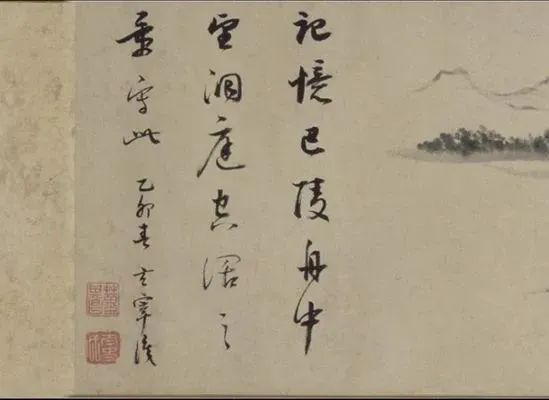 記憶巴陵舟中
望洞庭空濶之
景寫此 乙卯春 玄宰